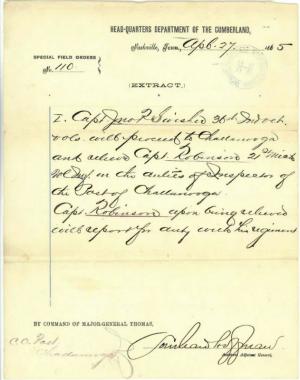 HEAD-QUARTERS DEPARTMENT OF THE CUMBERLAND,
Nashville, Tenn., Apl. 27 1865
SPECIAL FIELD ORDERS
No. 110
(EXTRACT.)
I. Capt Jno F Swisher 36th Ind vet
vols will proceed to Chattanooga
and relieve Capt. Robinson 21st Mich
in the duties of Inspector of
the Post of Chattanooga.
Capt Robinson upon being relieved
will report for duty with his regiment
BY COMMAND OF MAJOR-GENERAL THOMAS,
C.O. Post
Chattanooga
Assistant Adjutant General.